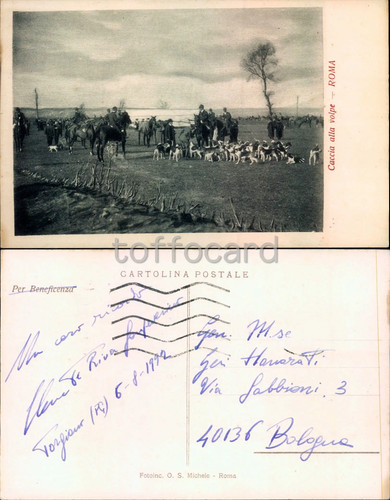 Caccia alla volpe - ROMA
toffocard
CARTOLINA POSTALE
Per Beneficenza
Un caro ricordo
Elena De Riva
Torgiano (PG) 6-8-1992
Gen. M.se
Via Gabbiani 3
40136 Bologna
Fotoinc. O. S. Michele - Roma